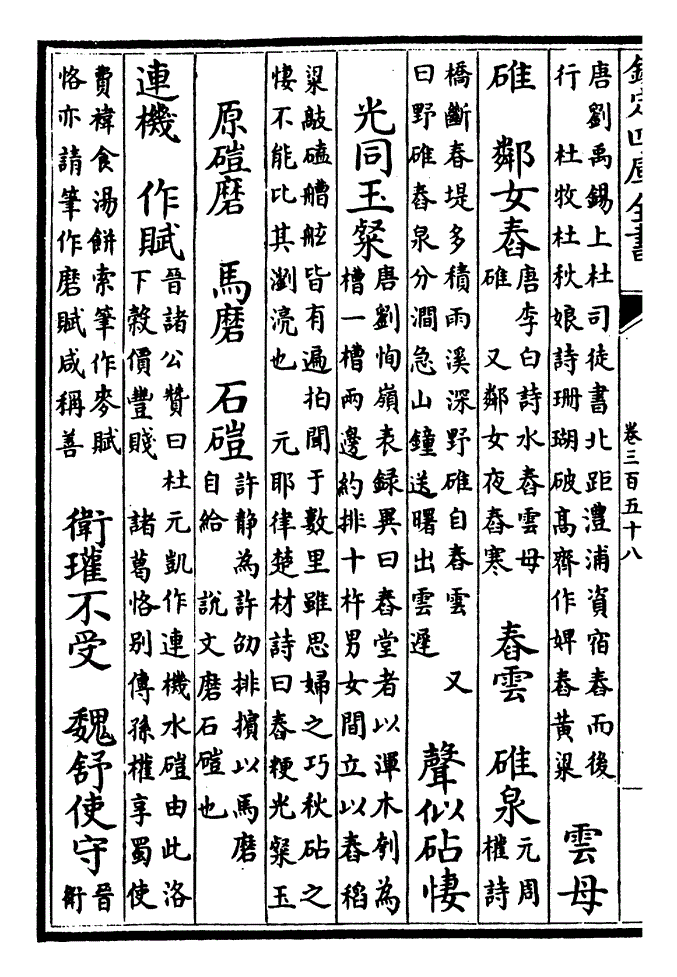 欽定四庫全書 卷三百五十八
唐劉禹錫上杜司徒書北距澧浦資宿舂而後
行 杜牧杜秋娘詩珊瑚破髙齊作婢舂黄粱
雲母
碓 鄰女舂
唐李白詩水舂雲母
碓 又鄰女夜舂寒
舂雲 碓泉
元周
權詩
橋斷春堤多積雨溪深野碓自舂雲 又
曰野碓舂泉分澗急山鐘送曙出雲遲
聲似砧悽
光同玉粲
唐劉恂嶺表録異曰舂堂者以渾木刳為
槽一槽兩邊約排十杵男女間立以舂稻
粱敲磕艚舷皆有遍拍聞于數里雖思婦之巧秋砧之
悽不能比其瀏湸也 元耶律楚材詩曰舂粳光粲玉
原磑磨 馬磨 石磑
許静為許劭排擯以馬磨
自給 說文磨石磑也
連機 作賦
晉諸公贊曰杜元凱作連機水磑由此洛
下榖價豐賤 諸葛恪别傳孫權享蜀使
費禕食湯餅索筆作麥賦
恪亦請筆作磨賦咸稱善
衛瓘不受 魏舒使守
晉
衛